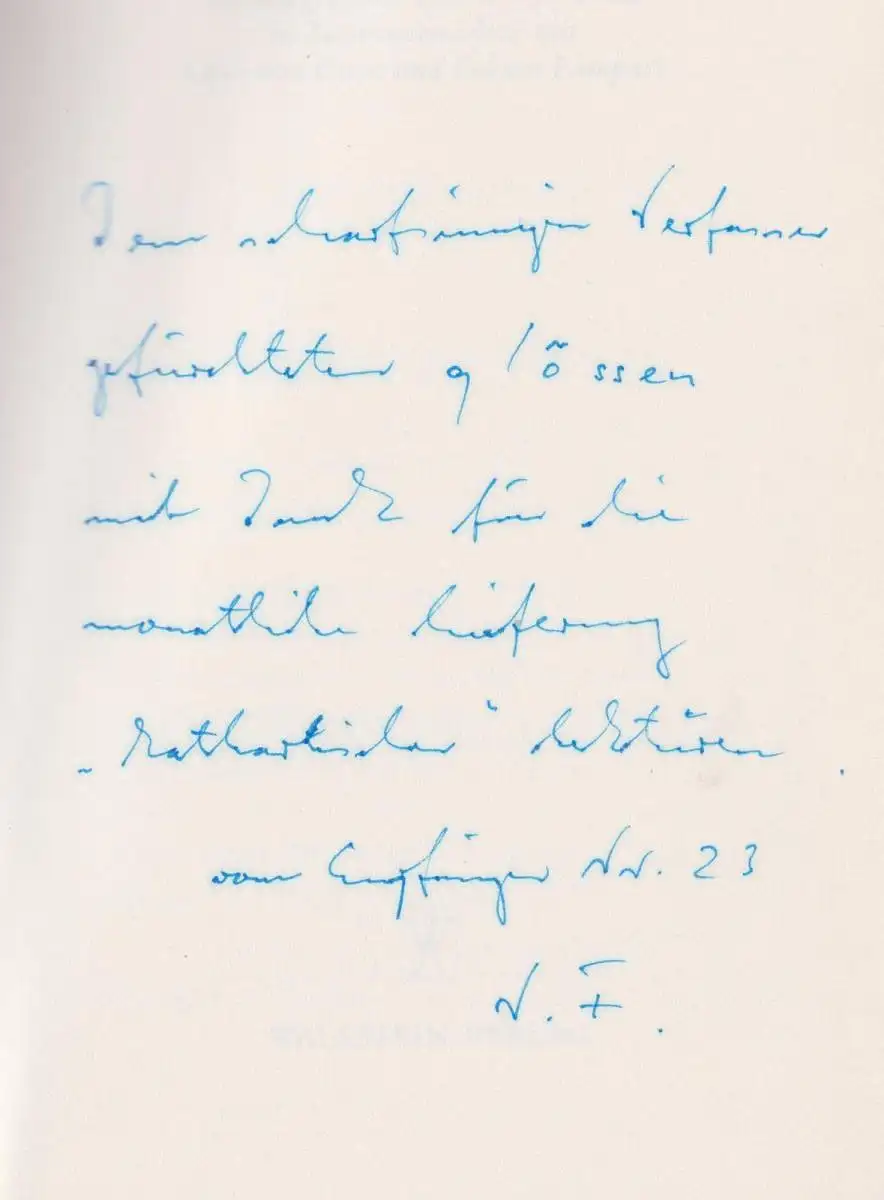 Dem scharfsinnigen Verfasser
gefürchteter glössen
mit Dank für die
monatliche Lieferung
„kathartischer“ Lektüren.
vom Empfänger Nr. 23
V. F.